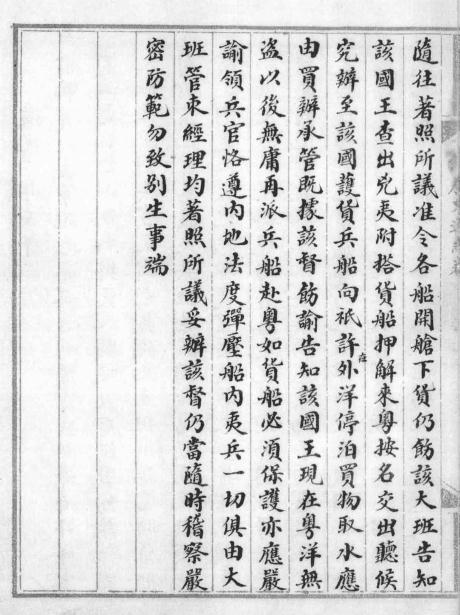 隨往著照所議准令各船開艙下貨仍飭該大班告知
該國王查出兇夷附搭貨船押解來粵按名交出聽候
究辦至該國護貨兵船向祇許在外洋停泊買物取水應
由買辦承管既據該督飭諭告知該國王現在粵洋無
盜以後無庸再派兵船赴粵如貨船必須保護亦應嚴
諭領兵官恪遵內地法度彈壓船內夷兵一切俱由大
班管束經理均著照所議妥辦該督仍當隨時稽察嚴
密防範勿致別生事端